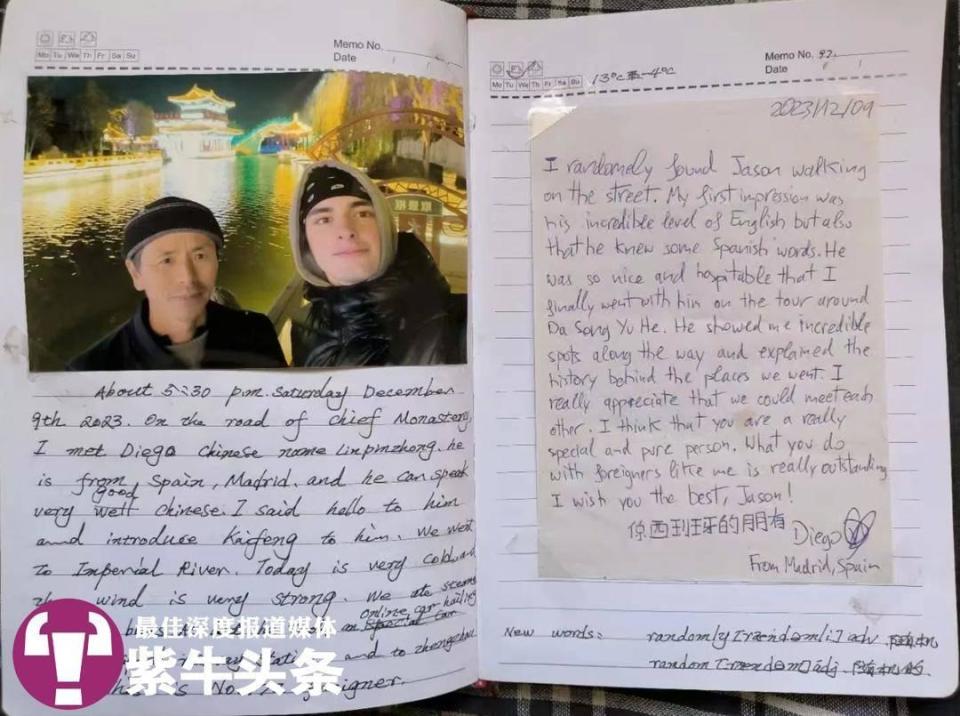 Memo No.
Date
Mo Tu We Th Fr Sa Su
About 5:30 p.m. Saturday December
9th 2023. On the road of Chief Monastery,
I met Diego Chinese name Linpinzhong. he
is from Spain, Madrid. and he can speak
good
very well Chinese. I said hello to him
and introduce Kaifeng to him. We went
To Imperial River. Today is very cold, and
the wind is very strong. We ate
online car-hailing
an special car
and to
No.
最佳深度报道媒体
紫牛头条
Memo No. 92
Date
Mo Tu We Th Fr Sa Su
13℃至-4℃
2023/12/09
I randomely found Jason walking
on the street. My first impression was
his incredible level of English but also
that he knew some Spanish words. He
was so nice and hospitable that I
finally went with him on the tour around
Da Song Yu He. He showed me incredible
spots along the way and explained the
history behind the places we went. I
really appreciate that we could meet each
other. I think that you are a really
special and pure person. What you do
with foreigners like me is really outstanding
I wish you the best, Jason!
你西班牙的朋有
Diego
From Madrid, Spain
New words: randomly adv. 随机
random adj. 随机的